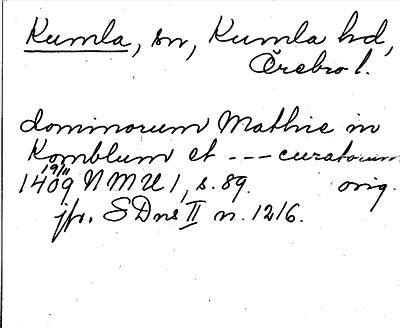 Kumla, sn, Kumla hd,
Örebro l.
dominorum Mathie in
Komblum et --- curatorum
19/11
1409 NMU 1, s. 89. orig.
jfr. SDns II n. 1216.